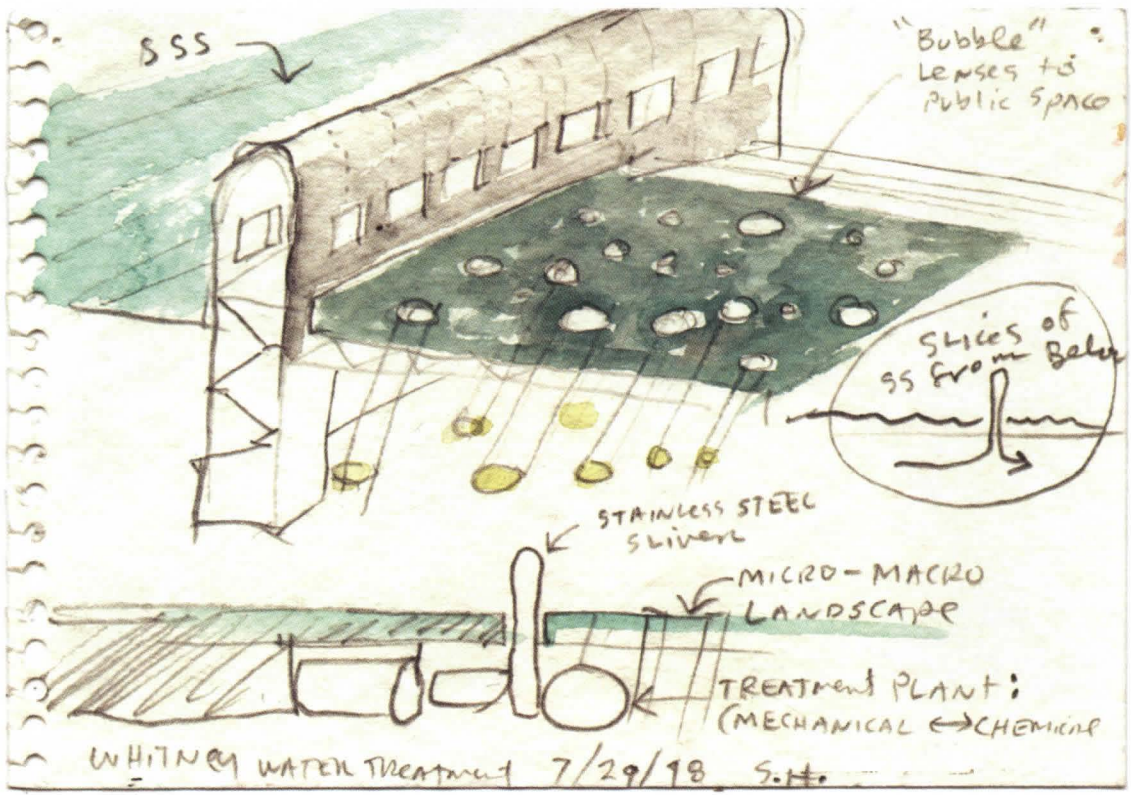 SSS
"Bubble"
Lenses to
Public Space
Slices of
ss from Below
STAINLESS STEEL
SLIVER
MICRO-MACRO
LANDSCAPE
TREATMENT PLANT:
(MECHANICAL ↔ CHEMICAL
WHITNEY WATER TREATMENT 7/29/98 S.H.